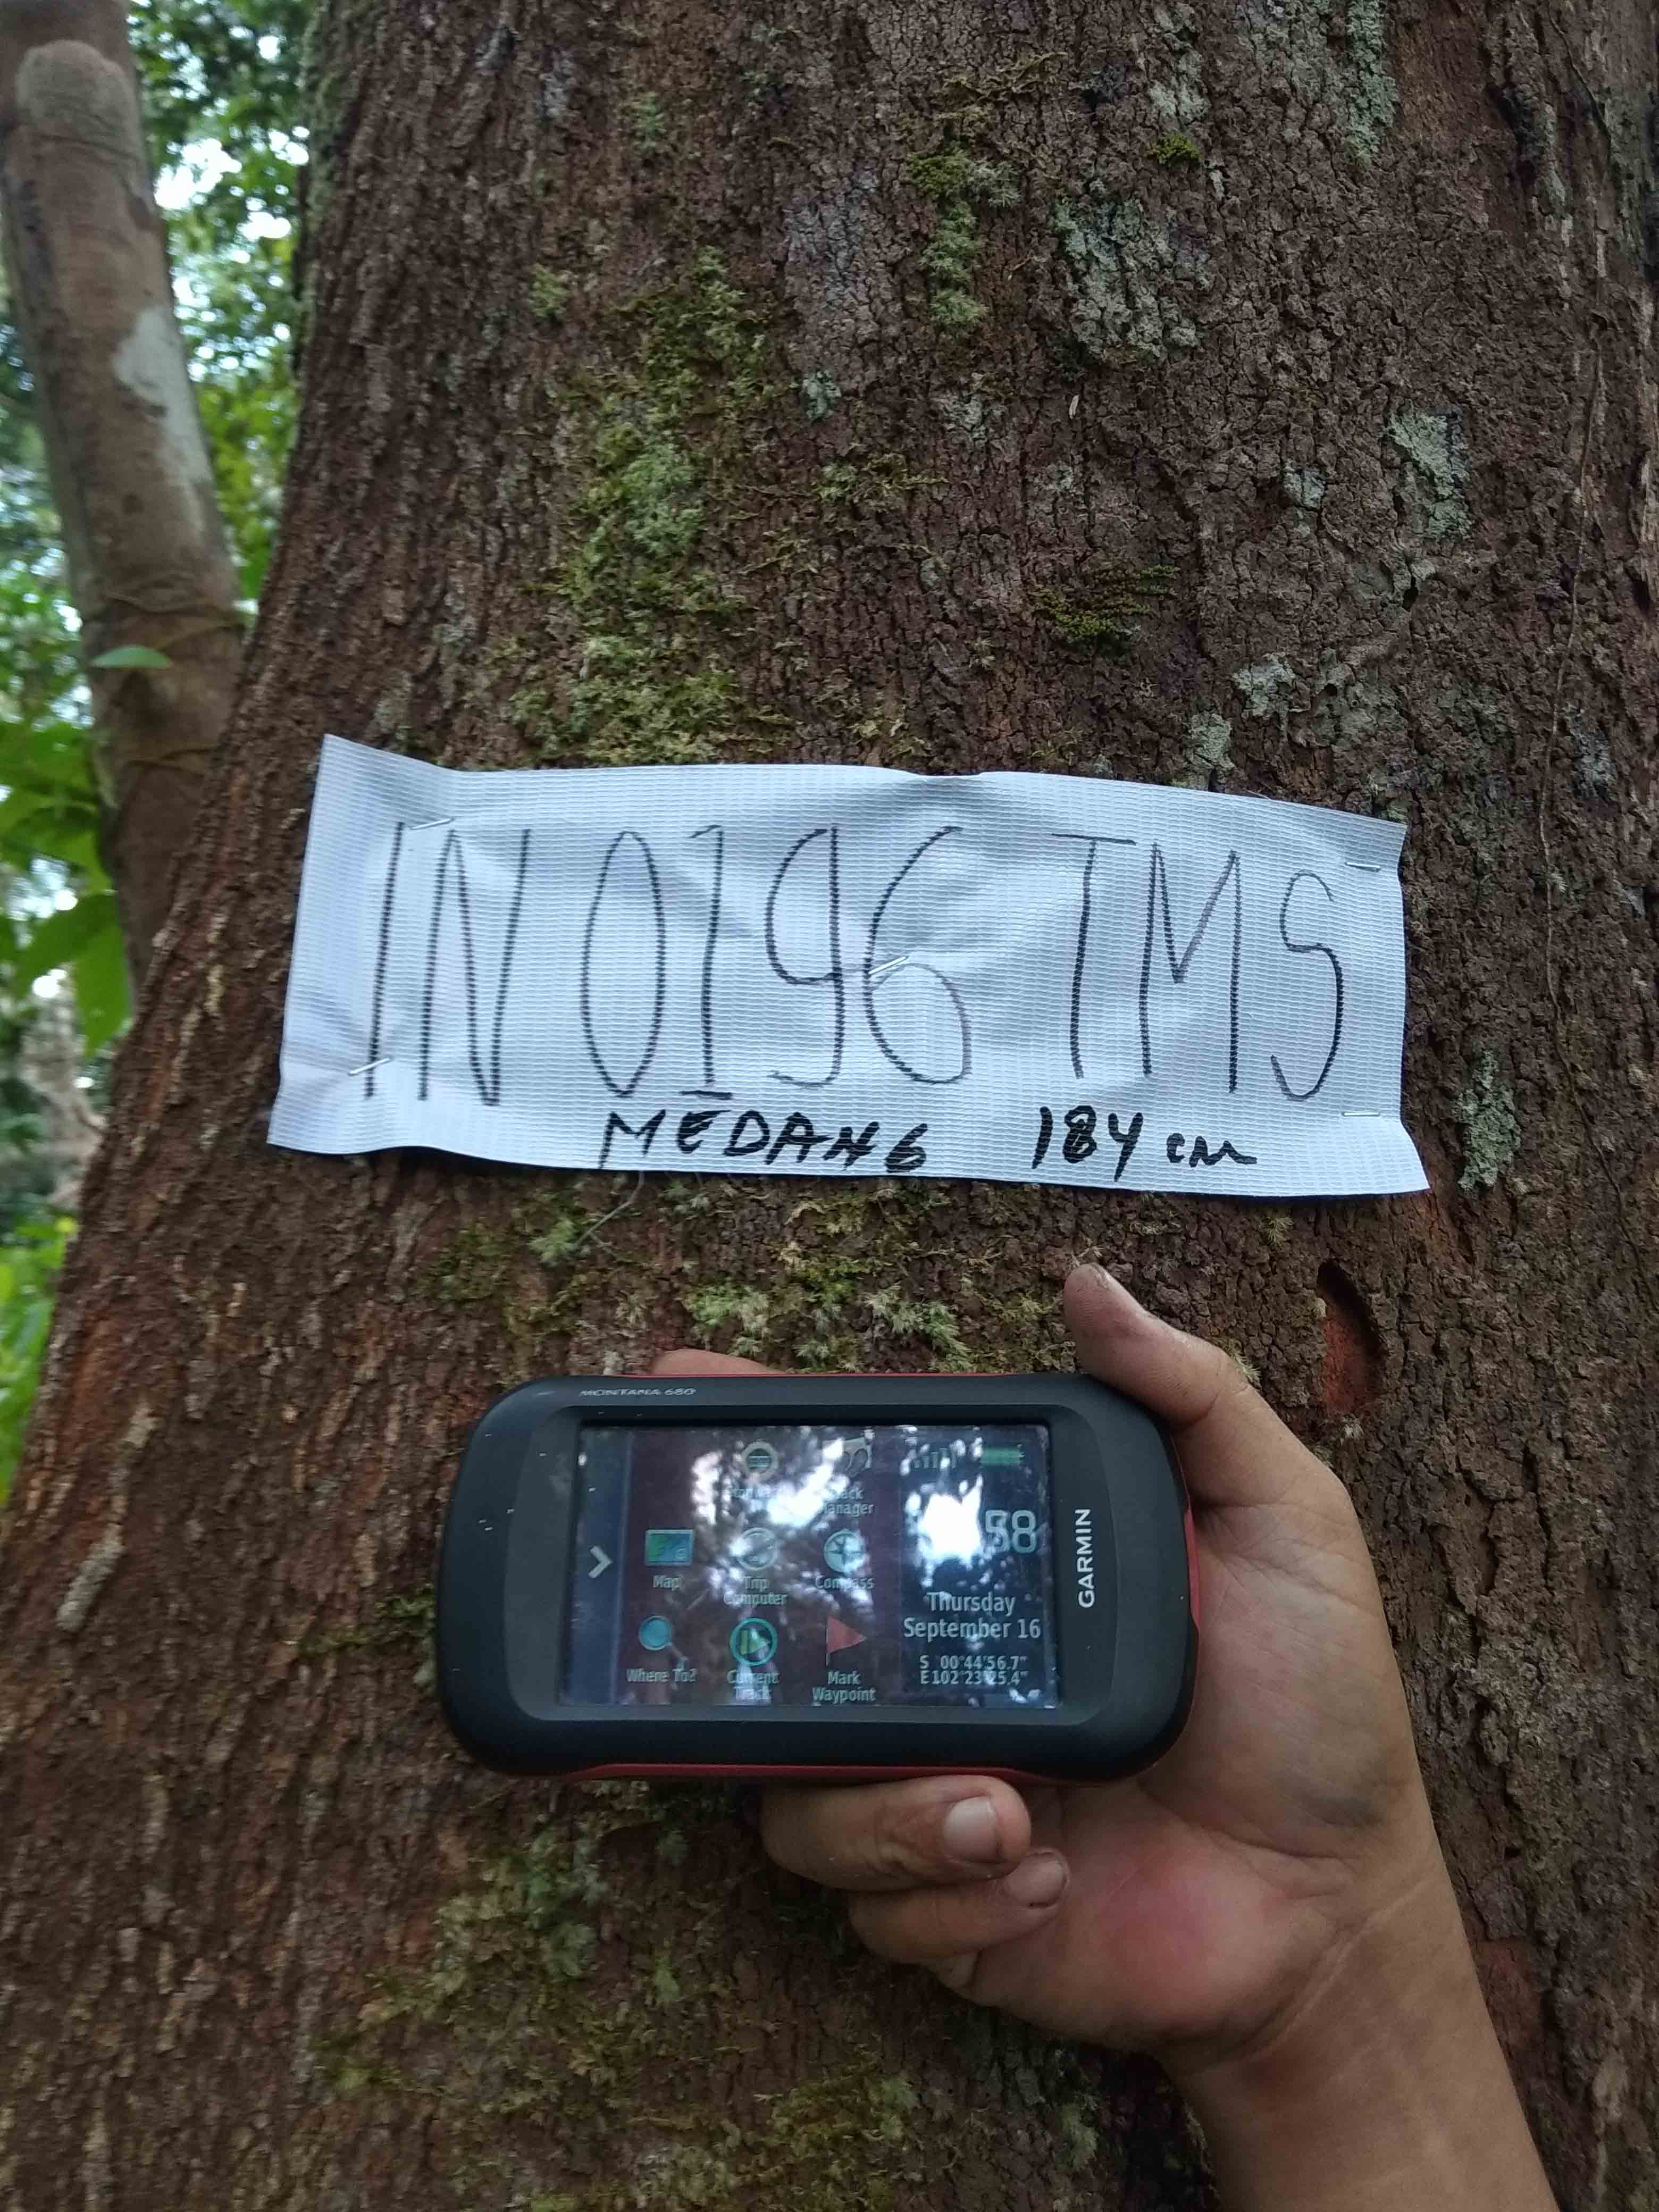 IN 0196 TMS
MEDANG 184 cm
MONTANA 680
Map
Trip
Computer
Compass
Where To?
Current
Track
Mark
Waypoint
58
Thursday
September 16
S 00°44'56.7"
E102°23'25.4"
GARMIN